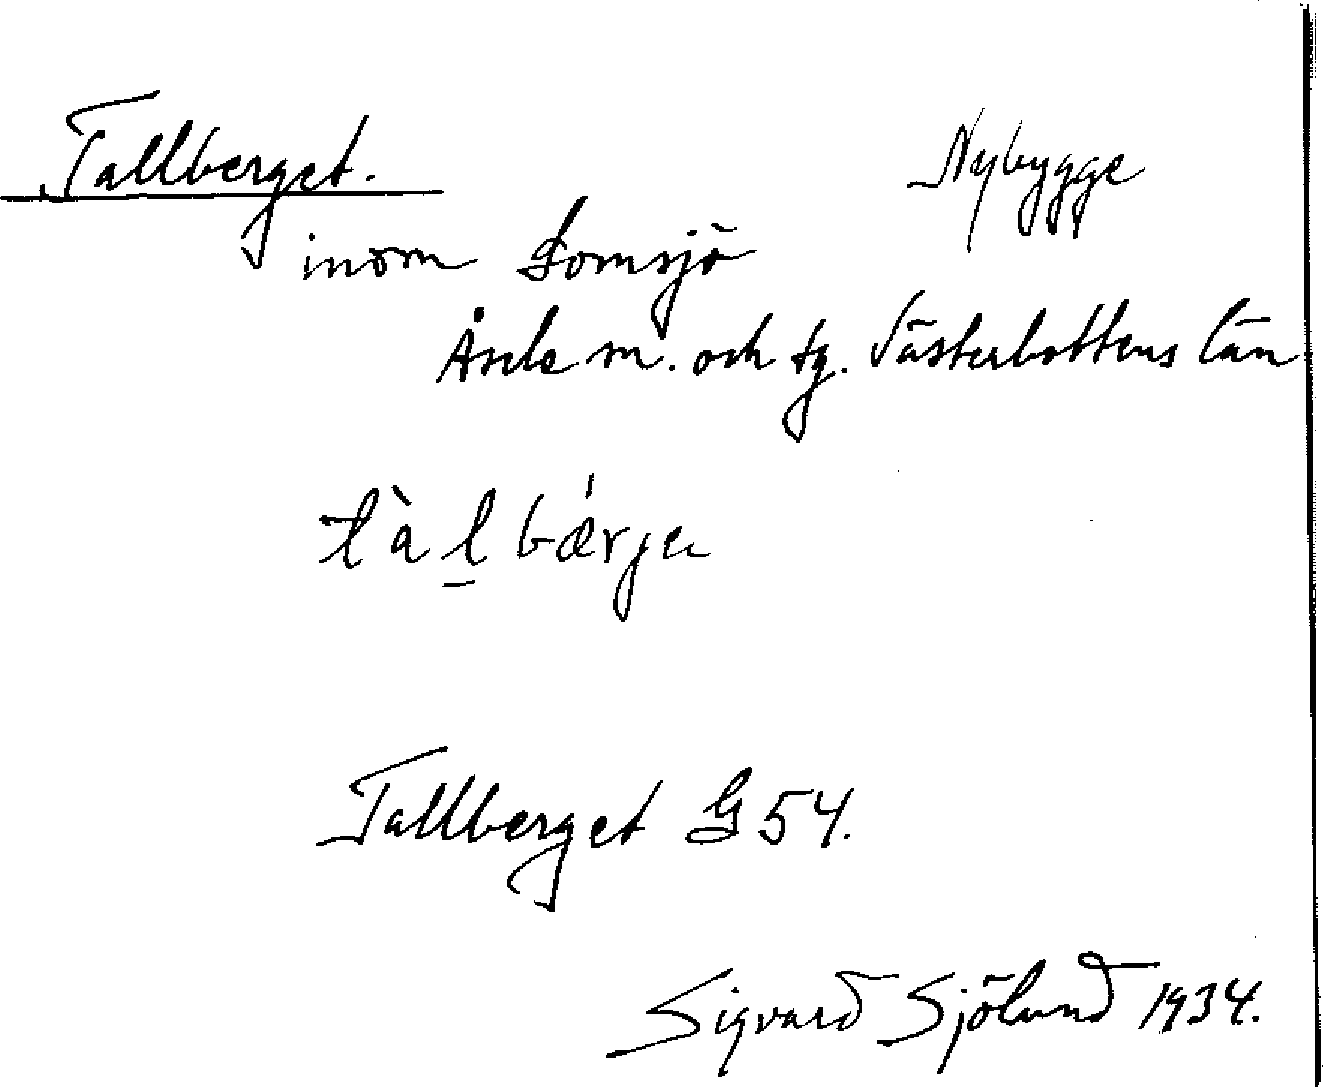 Tallberget. Nybygge
inom Lomsjö
Åsele sn. och tg. Västerbottens län
tàl̲bǽrje
Tallberget G 54.
Sigvard Sjölund 1934.